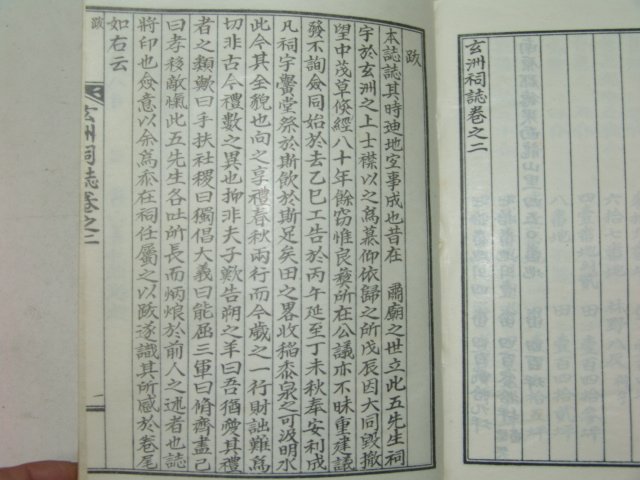 玄洲祠誌卷之二
跋
本誌誌其時迪地室事成也昔在 肅廟之世立此五先生祠
宇於玄洲之上士襟以之爲慕仰依歸之所戊辰因大同毁撤
望中茂草倐經八十年餘窃惟良彛所在公議亦不昧重建議
發不詢僉同始於去乙巳工告於丙午延至丁未秋奉安利成
凡祠宇黌堂祭於斯飮於斯足矣田之畧收稲黍泉之可汲明水
此今其全貌也向之享禮春秋兩行而今歳之一行財詘難爲
切非古今禮數之異也抑非夫子歎告朔之羊曰吾猶愛其禮
者之類歟曰手扶社稷曰獨倡大義曰能屈三軍曰脩齊盡己
曰孝移敵愾此五先生各吐所長而炳烺於前人之述者也誌
將印也僉意以余爲忝在祠任屬之以跋遂識其所感於卷尾
如右云
跋
玄洲祠誌卷之二
一